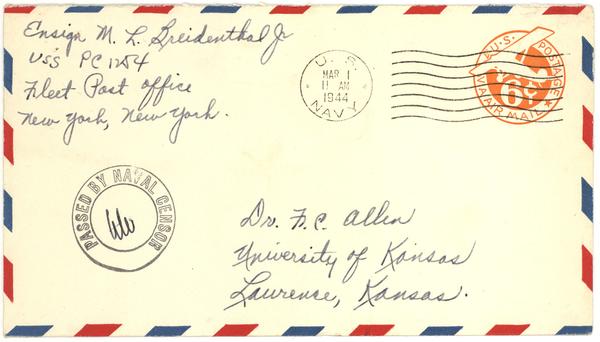 Ensign M. L. Breidenthal Jr
USS PC 1254
Fleet Post office
New York, New York.
U. S.
MAR 1
11 AM
1944
NAVY
U.S. POSTAGE
6¢
VIA AIR MAIL
PASSED BY NAVAL CENSOR
Dr. F. C. Allen
University of Kansas
Lawrence, Kansas.